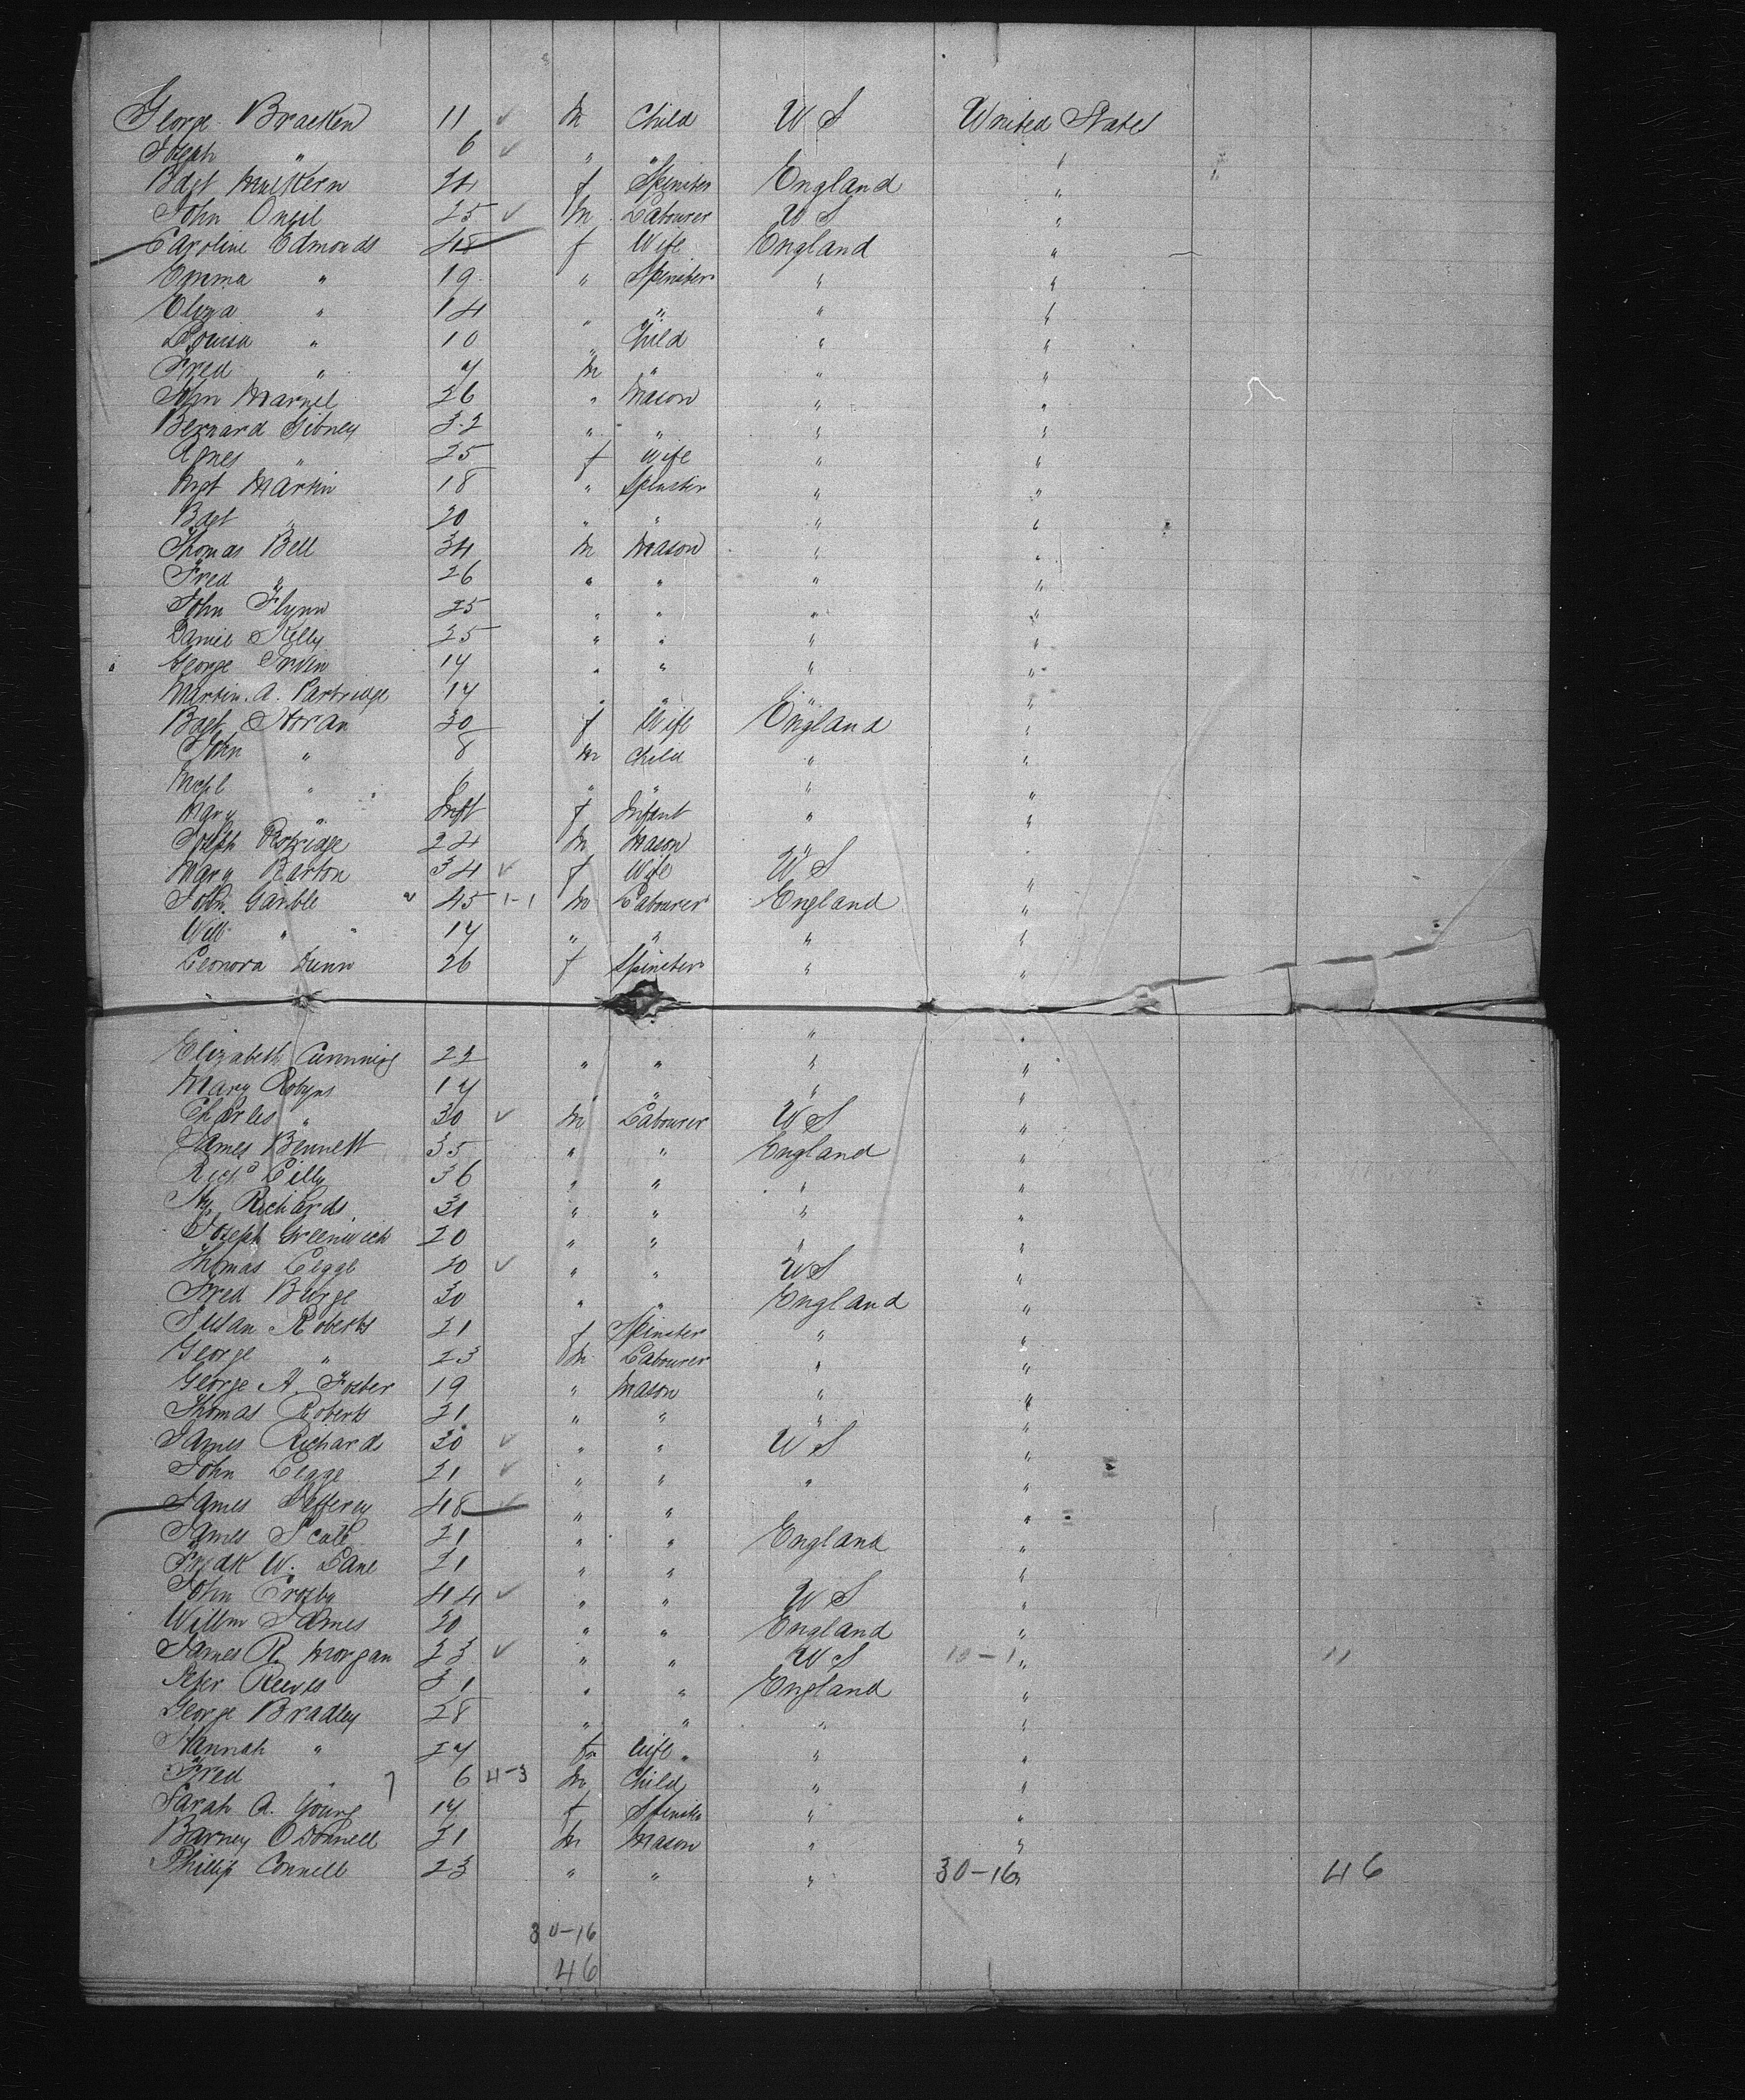 George Bracken 11 ✓ m Child U S United States
Joseph " 6 ✓ " " "
Bdgt Mulkern 24 f Spinster England "
John Oneil 25 ✓ m Labourer U S "
Caroline Edmonds 48 f Wife England "
Emma " 19 " Spinster " "
Eliza " 14 " " " "
Louisa " 10 " Child " "
Fred " 7 m " " "
John Marnel 26 " Mason " "
Bernard Gibney 32 " " " "
Agnes " 25 f Wife " "
Mgt Martin 18 " Spinster " "
Bdgt " 20 " " " "
Thomas Bell 34 m Mason " "
Fred " 26 " " " "
John Flynn 25 " " " "
Daniel Kelly 25 " " " "
George Irwin 17 " " " "
Martin. A. Partridge 17 " " " "
Bdgt Horan 30 f Wife England "
John " 8 m Child " "
Michl " 6 " " " "
Mary " Inft f Infant " "
Joseph 24 m Mason "
Mary Barton 34 ✓ f Wife U S "
John Garble 45 1-1 m Labourer England "
Will " 17 " " " "
Leonora Dunn 26 f Spinster " "
" "
Elizabeth Cumming 22 " " " "
Mary Robyns 17 " " " "
Charles " 30 ✓ m Labourer U S "
James Bennett 35 " " England "
Richd Lilly 36 " " " "
Hy Richards 31 " " " "
Joseph Greenwich 20 " " " "
Thomas Legge 30 ✓ " " U S "
Fred Burge 30 " " England "
Susan Roberts 21 f Spinster " "
George " 23 m Labourer " "
George A. Foster 19 " Mason " "
Thomas Roberts 21 " " " "
James Richards 30 ✓ " " U S "
John Legge 21 ✓ " " " "
James Jeffery 48 ✓ " " "
James Scott 21 " " England "
Fredk W. Lane 21 " " "
John Crosby 44 ✓ " " U S "
Willm James 20 " " England "
James R. Morgan 23 ✓ " " U S 10-1 " 11
Peter Reeves 31 " " England "
George Bradley 28 " " " "
Hannah " 27 f Wife " "
Fred " 7 6 4-3 m Child " "
Sarah A. Young 17 f Spinster " "
Barney O'Donnell 31 m Mason " "
Phillip Connell 23 " " " 30-16 " 46
30-16
46